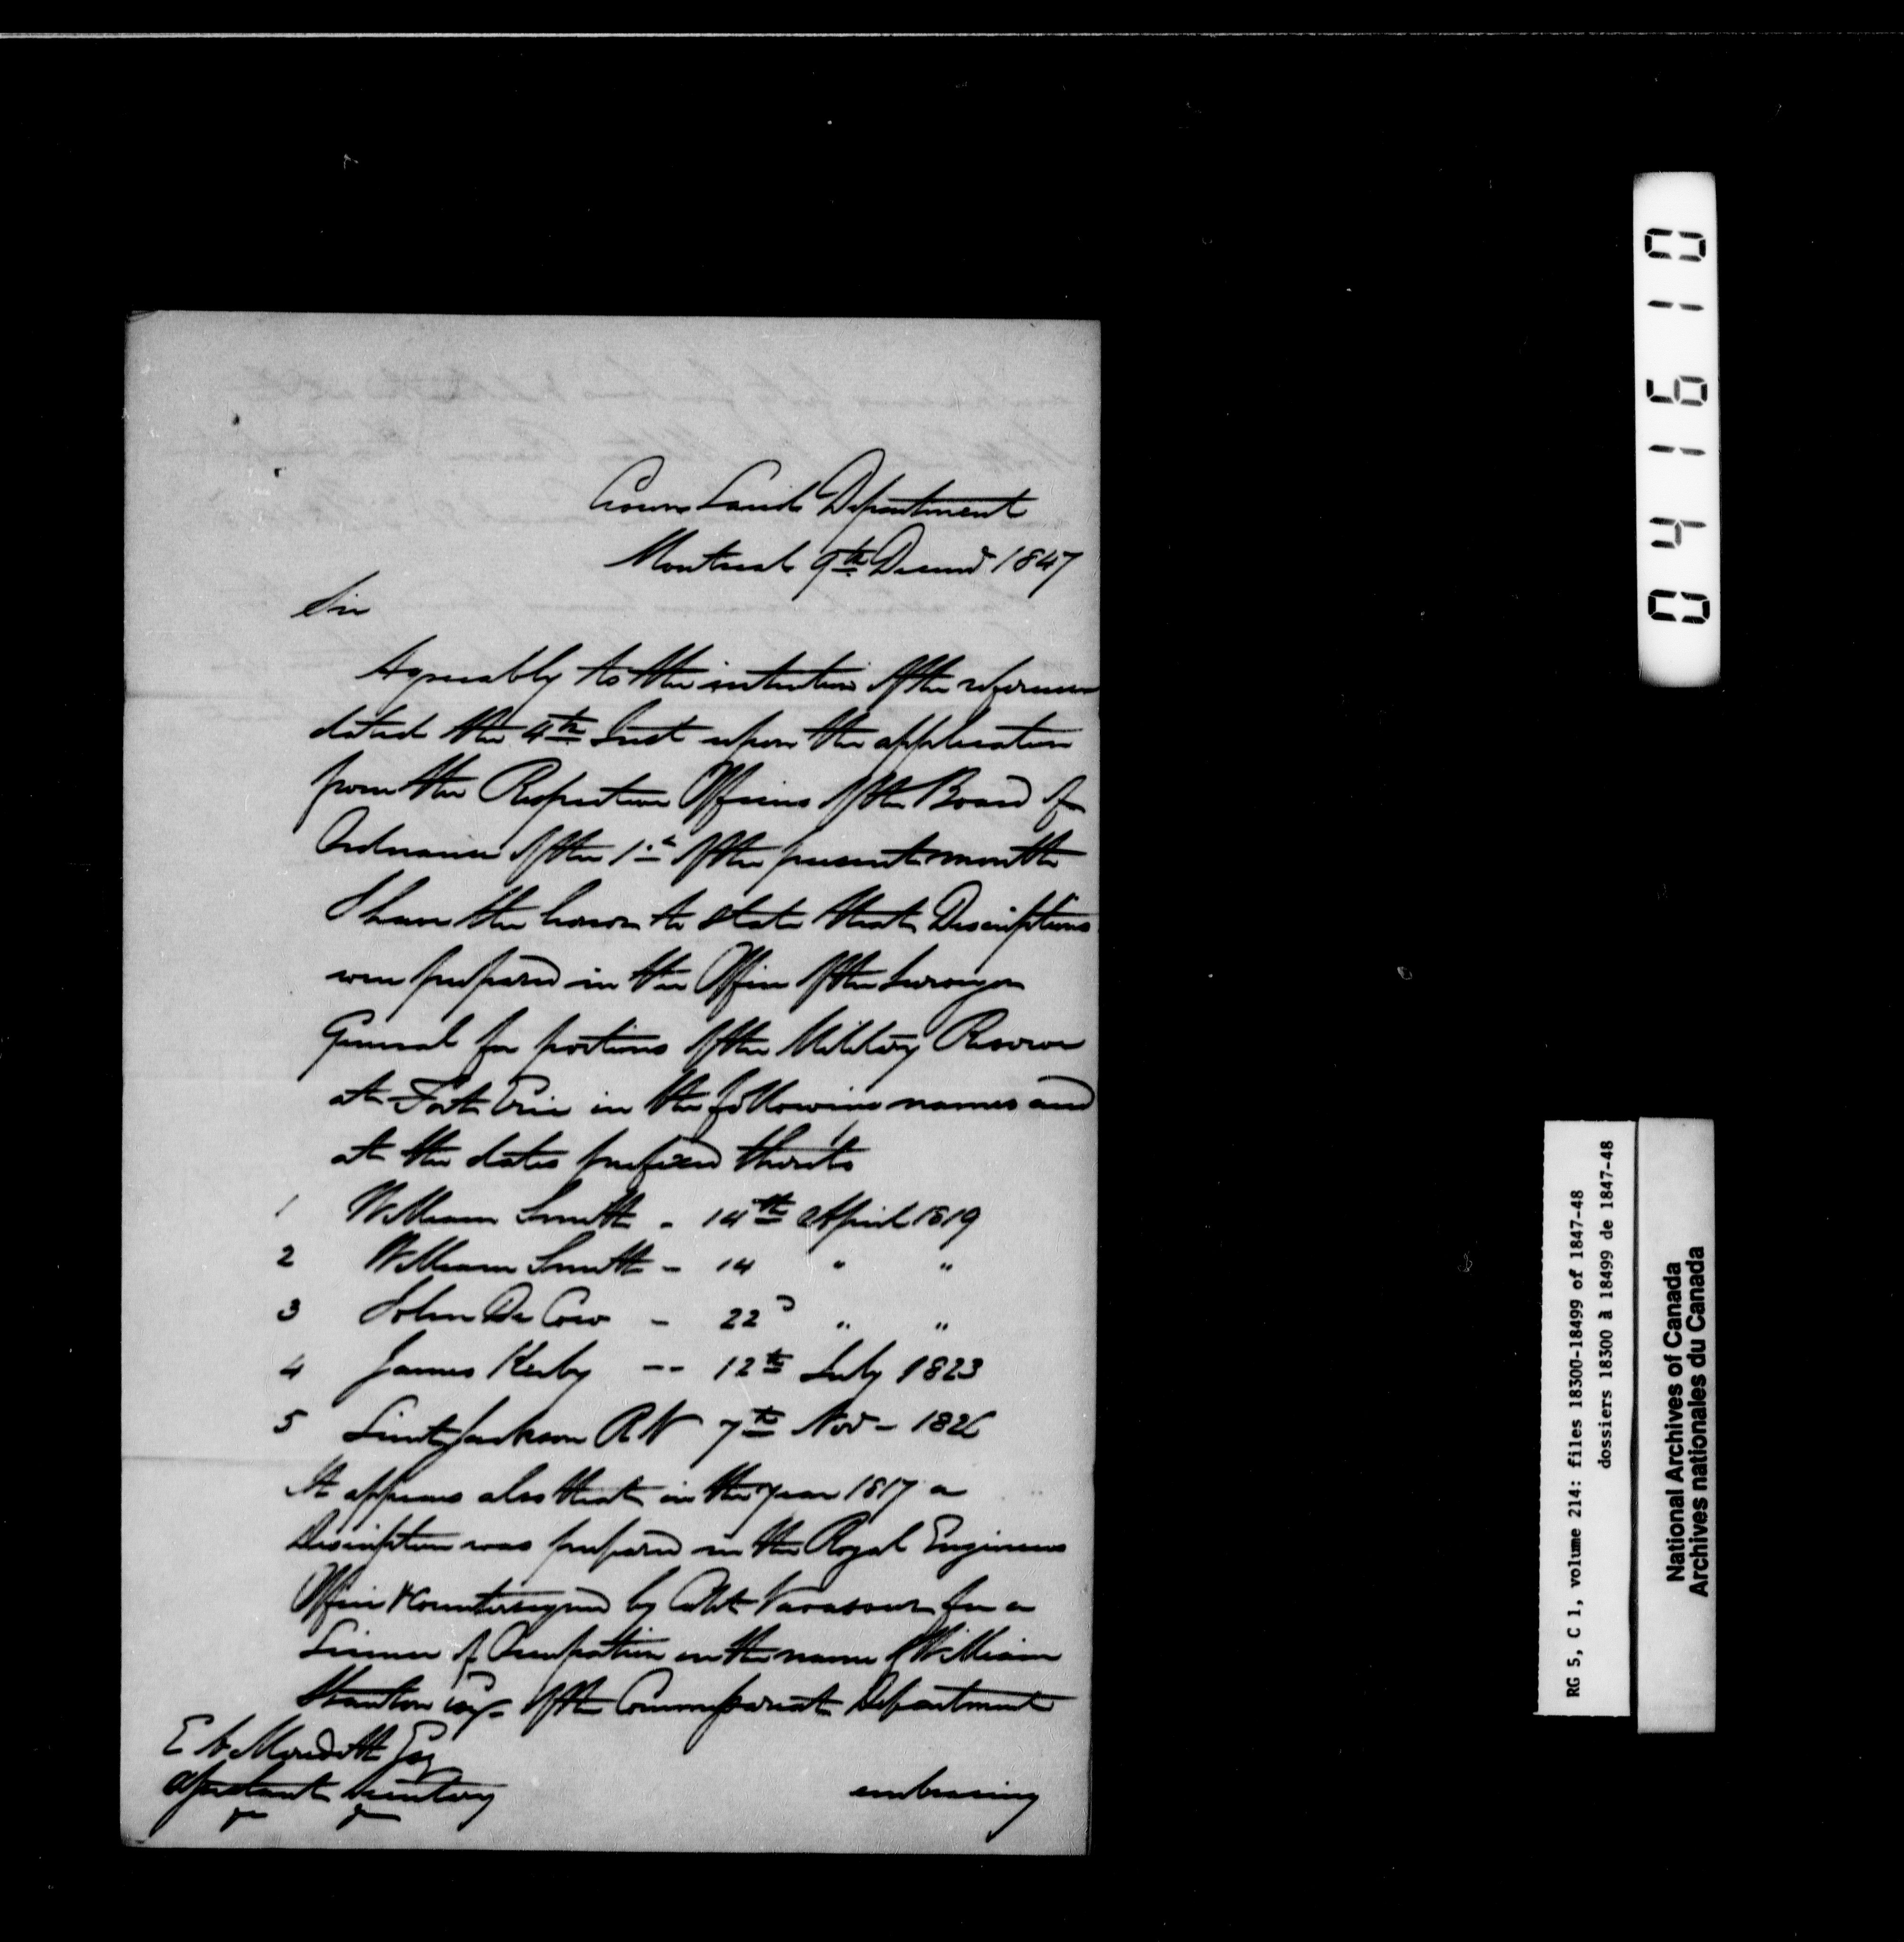 Crown Lands Department
Montreal 9th Decemr 1847
Sir
Agreeably to the intention of the reference
dated the 4th Inst upon the application
from the Respective Officers of the Board of
Ordnance of the 1st of the present month
I have the honor to state that Descriptions
were prepared in the Office of the Surveyor
General for portions of the Military Reserve
at Fort Erie in the following names and
at the dates prefixed thereto
1 William Smith - 14th April 1819
2 William Smith - 14 " "
3 John De Cow - 22d " "
4 James Kerby -- 12th July 1823
5 Lieut Jackson RN 7th Nov - 1826
It appears also that in the year 1817 a
Description was prepared in the Royal Engineers
Office & Countersigned by Vavasour for a
License of Occupation in the name of William
Stanton Esqr of the Commissariat Department
E A Meredith Esq
Assistant Secretary
embracing
04 16 10
RG 5, C 1, volume 214: files 18300-18499 of 1847-48
dossiers 18300 à 18499 de 1847-48
National Archives of Canada
Archives nationales du Canada